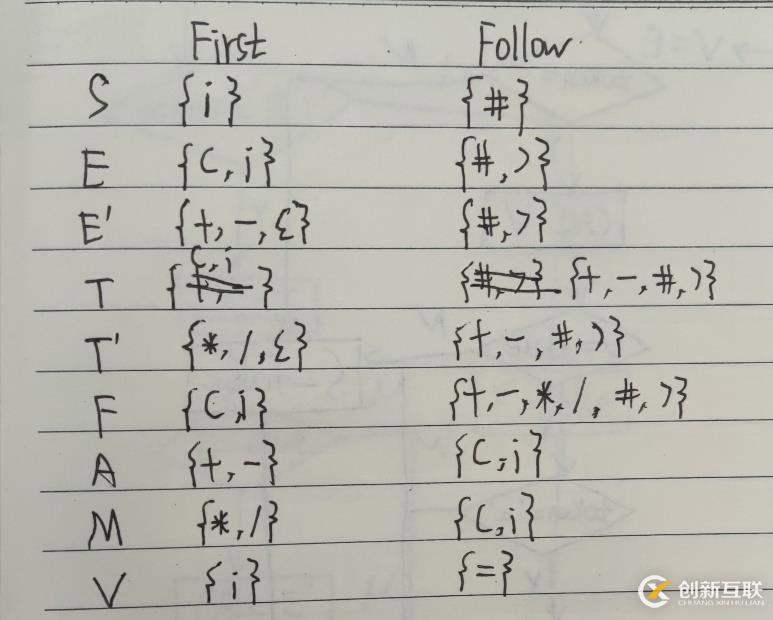 First Follow
S {i} {#}
E {(, i} {#, )}
E' {+, -, ε} {#, )}
(, i
T { } {+, -, #, )}
T' {*, /, ε} {+, -, #, )}
F {(, i} {+, -, *, /, #, )}
A {+, -} {(, i}
M {*, /} {(, i}
V {i} {=}
创新互联
CHUANG XIN HU LIAN